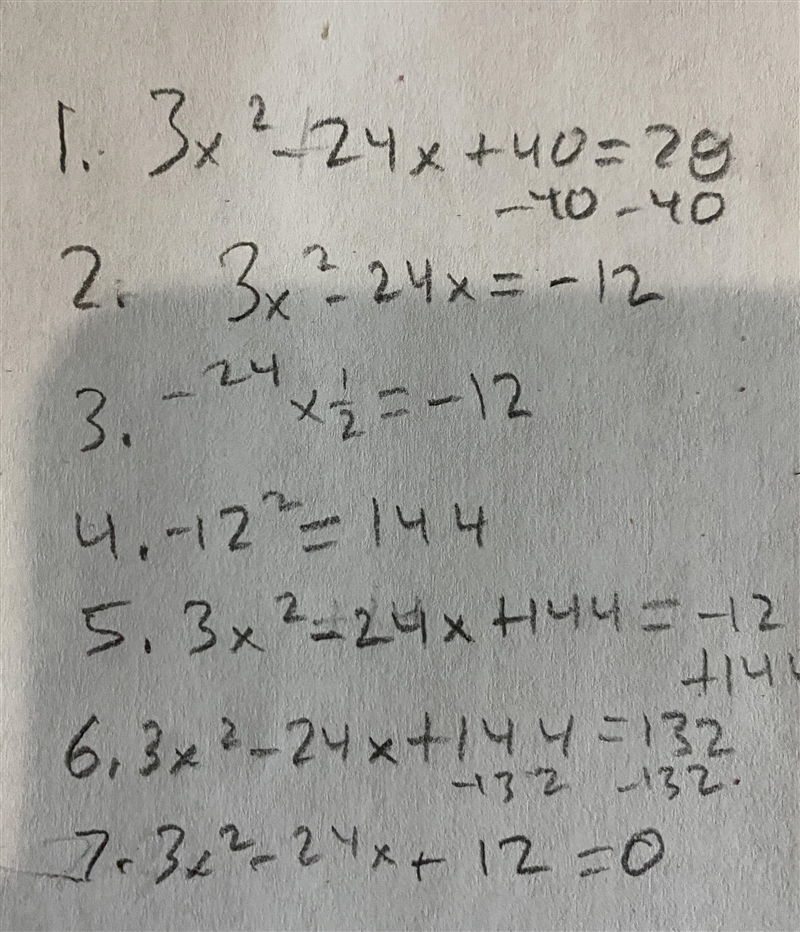 1. 3x² - 24x + 40 = 28
-40 -40
2. 3x² - 24x = -12
3. -24 x ½ = -12
4. -12² = 144
5. 3x² - 24x + 144 = -12
+144
6. 3x² - 24x + 144 = 132
-132 -132.
7. 3x² - 24x + 12 = 0